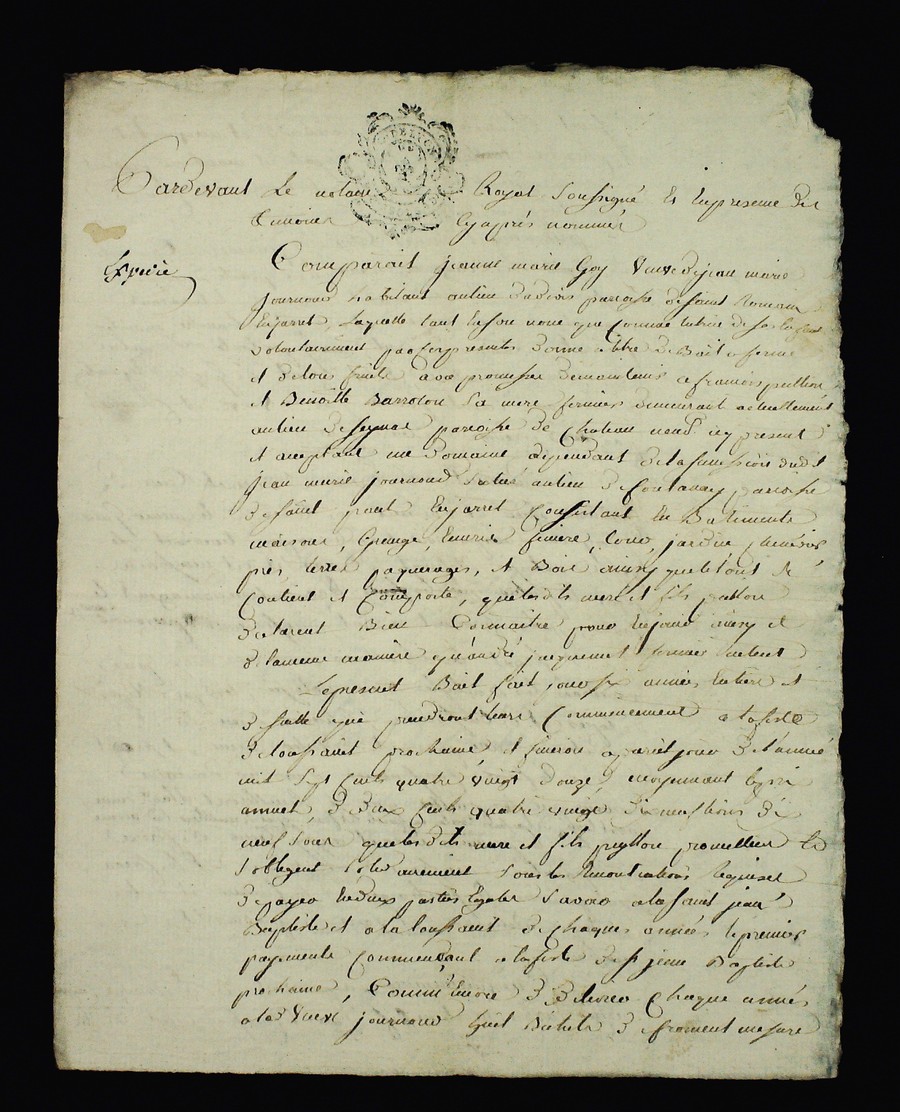 Pardevant Le notaire Royal Soussigné Et En presence des
temoins Cy après nommés
Expedié
Comparait jeanne marie Goy Veuve de jean marie
journoud habitant au lieu parroisse de saint Romain
En jarret, Laquelle tant En son nom que Comme tutrice de
volontairement par ces presentes donne à titre de Bail a ferme
et de tous fruits avec promesse de maintenir a francois
et Benoitte Barrolon Sa mere fermier demeurant actuellement
au lieu de parroisse de Chateau neuf icy present
et acceptant un Domaine dependant de la succession dudit
jean marie journoud Situé au lieu de fontanay parroisse
de saint En jarret Consistant En Batiments
maison, Grange, Ecurie, Cour, jardin
près, terres paquerages, et Bois ainsy que le tout se
Contient et Comporte, que lesdits mere et fils
declarent Bien Connaitre pour En jouir ainsy et
de la meme maniere fermier
Le present Bail fait pour six années Entiere et
de suitte qui prendront leur Commencement a la feste
de toussaint prochaine et finiront a pareil jour de l'année
mil Sept Cents quatre vingt Douze, moyennant le prix
annuel de deux Cents quatre vingt Dix neuf livres dix
neuf Sous que lesdits mere et fils promettent Et
s'obligent Solidairement Sous les Renonciations Requises
de payer En deux parties Egales Savoir a la saint jean
Baptiste et a la toussaint de chaques années le premier
payement Commencant a la feste de st jean Baptiste
prochaine, Comm'Encore de delivrer Chaque année
a lad. Veuve journoud huit Bichets de froment mesure